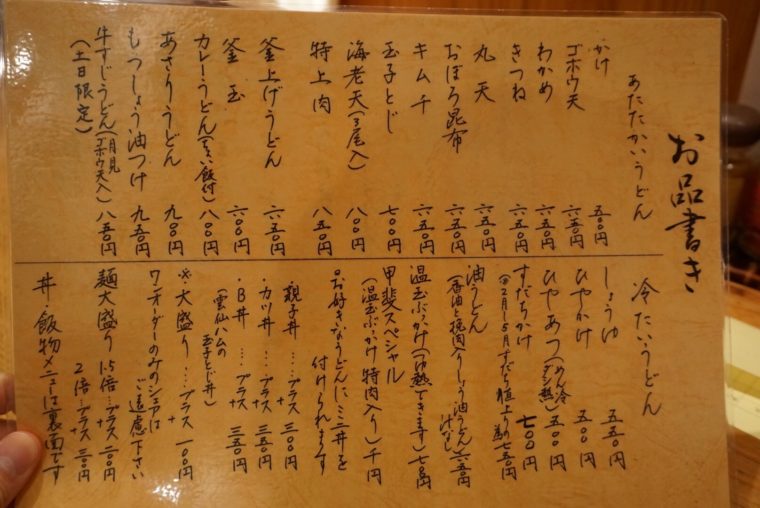 お品書き
あたたかいうどん
かけ 五〇〇円
ゴボウ天 六五〇円
わかめ 六五〇円
きつね 六五〇円
丸天 六五〇円
おぼろ昆布 六五〇円
キムチ 六五〇円
玉子とじ 七〇〇円
海老天(3尾入) 八〇〇円
特上肉 八五〇円
釜上げうどん 六五〇円
釜玉 六〇〇円
カレーうどん 飯付) 八〇〇円
あさりうどん 九〇〇円
もつしょう油つけ 九五〇円
牛すじうどん(月見ゴボウ天入) 八五〇円
(土日限定)
冷たいうどん
しょうゆ 五五〇円
ひやかけ 五〇〇円
ひやあつ(めん冷ダシ熱) 五〇〇円
すだちかけ 七〇〇円
油うどん
(香油と挽肉入りしょう油うどん汁なし) 六五〇円
温玉ぶかけ(つゆ熱できます) 七五〇円
甲斐スペシャル
(温玉ぶかけ特肉入り) 千円
◎お好きなうどんにミニ丼を
付けられます
・親子丼…プラス 三〇〇円
・カツ丼…プラス 三五〇円
・B丼…プラス 三五〇円
(雲仙ハムの玉子とじ丼)
※・大盛り…プラス 一〇〇円
ワンオーダーのみのシェアは
ご遠慮下さい
麺大盛り 1.5倍…プラス 二〇〇円
2倍…プラス 三〇〇円
丼・飯物メニューは裏面です